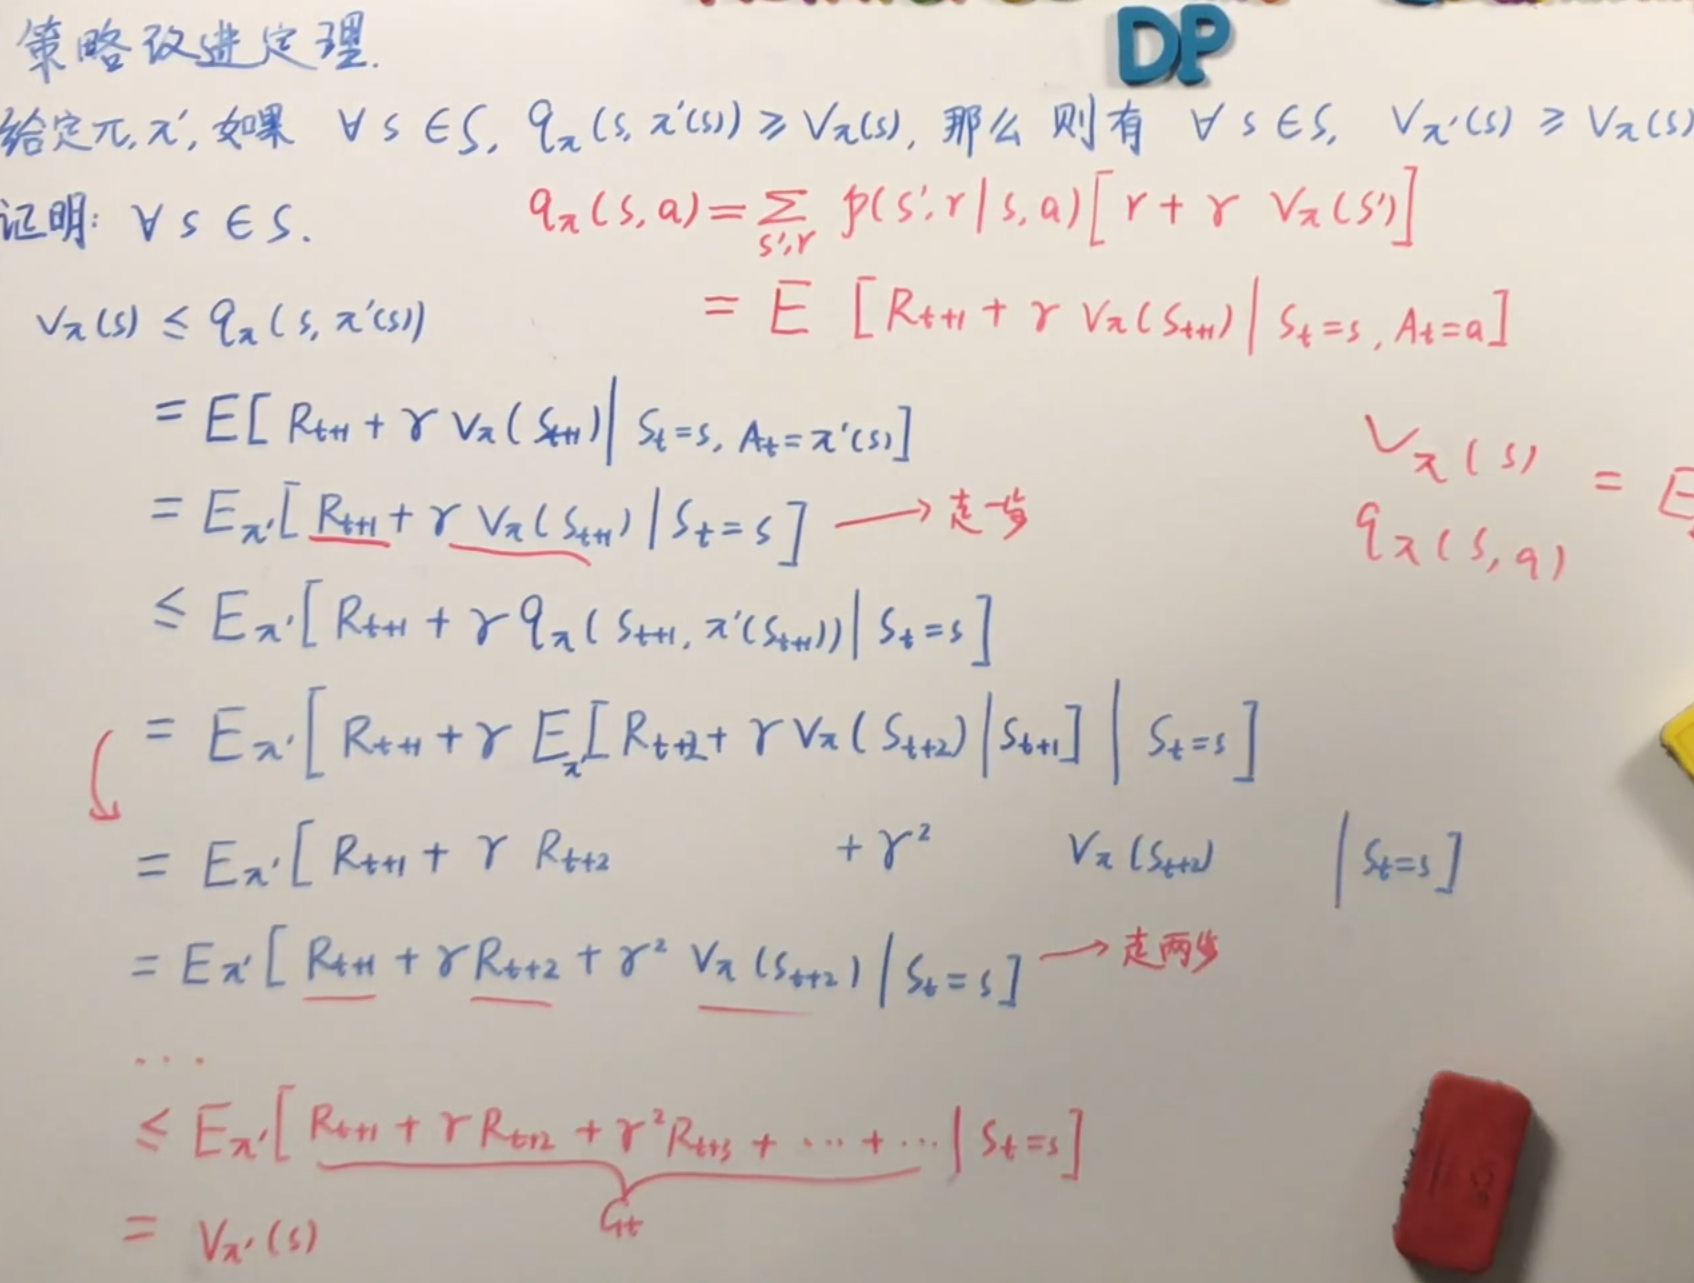 DP
策略改进定理.
给定π,π', 如果 ∀ s ∈ S, qπ(s, π'(s)) ≥ Vπ(s), 那么 则有 ∀ s ∈ S, Vπ'(s) ≥ Vπ(s)
证明: ∀ s ∈ S.
qπ(s, a) = Σs',r p(s', r | s, a) [r + γ Vπ(s')]
= E [Rt+1 + γ Vπ(St+1) | St=s, At=a]
Vπ(s) ≤ qπ(s, π'(s))
= E[Rt+1 + γ Vπ(St+1) | St=s, At=π'(s)]
= Eπ'[Rt+1 + γ Vπ(St+1) | St=s] → 走一步
Vπ(s)
qπ(s, a)
= E
≤ Eπ'[Rt+1 + γ qπ(St+1, π'(St+1)) | St=s]
= Eπ'[Rt+1 + γ Eπ'[Rt+2 + γ Vπ(St+2) | St+1] | St=s]
= Eπ'[Rt+1 + γ Rt+2 + γ² Vπ(St+2) | St=s]
= Eπ'[Rt+1 + γ Rt+2 + γ² Vπ(St+2) | St=s] → 走两步
...
≤ Eπ'[Rt+1 + γ Rt+2 + γ² Rt+3 + ... + ... | St=s]
Gt
= Vπ'(s)